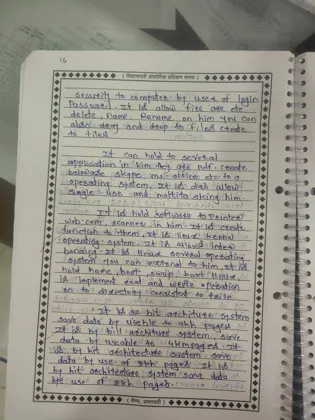 16
( विद्यार्थ्यांची औद्योगिक प्रशिक्षण संस्था )
security to computer by uses of login
Password. It is allow fire are etc
delete, name. Rename on him you can
also drag and drop to files create
to files
It can hold to several
application in him they are pdf. create
between skype ms-office etc to a
operating system. It is das allow
single uso and multita sking him.
It is hold software to Painter
web com, scanner in him. It is create
function to them, it is linux kernal
operating system. It is allows inter
having. It is linux several operating
system you can to him, it is
hold home, boot, swap, boot linux,
is implement read and write operation
on to directory consistent to faile.
It is 32 bit architure system
save data by useble to 4kh pages
It is by bill architure system, save
data by useable to 4kh pages. It
is by bit architecture system save
data by use of 4kh pages It is
by bit architecture system save data
by use of 4kh pages.